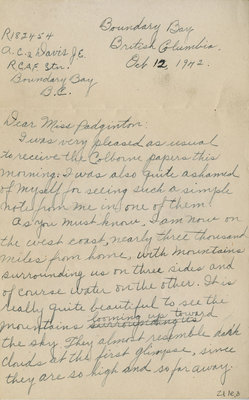 Boundary Bay
R182454
British Columbia.
A.C.2 Davis J.E.
Oct 12 1942.
R.C.A.F. Stn.
Boundary Bay
B.C.
Dear Miss Padginton:
I was very pleased as usual
to receive the Colborne papers this
morning. I was also quite ashamed
of myself for seeing such a simple
note from me in one of them!
As you must know, I am now on
the west coast, nearly three thousand
miles from home, with mountains
surrounding us on three sides and
of course water on the other. It is
really quite beautiful to see the
looming up toward
mountains surrounding us
the sky. They almost resemble dark
clouds at the first glimpse, since
they are so high and so far away.